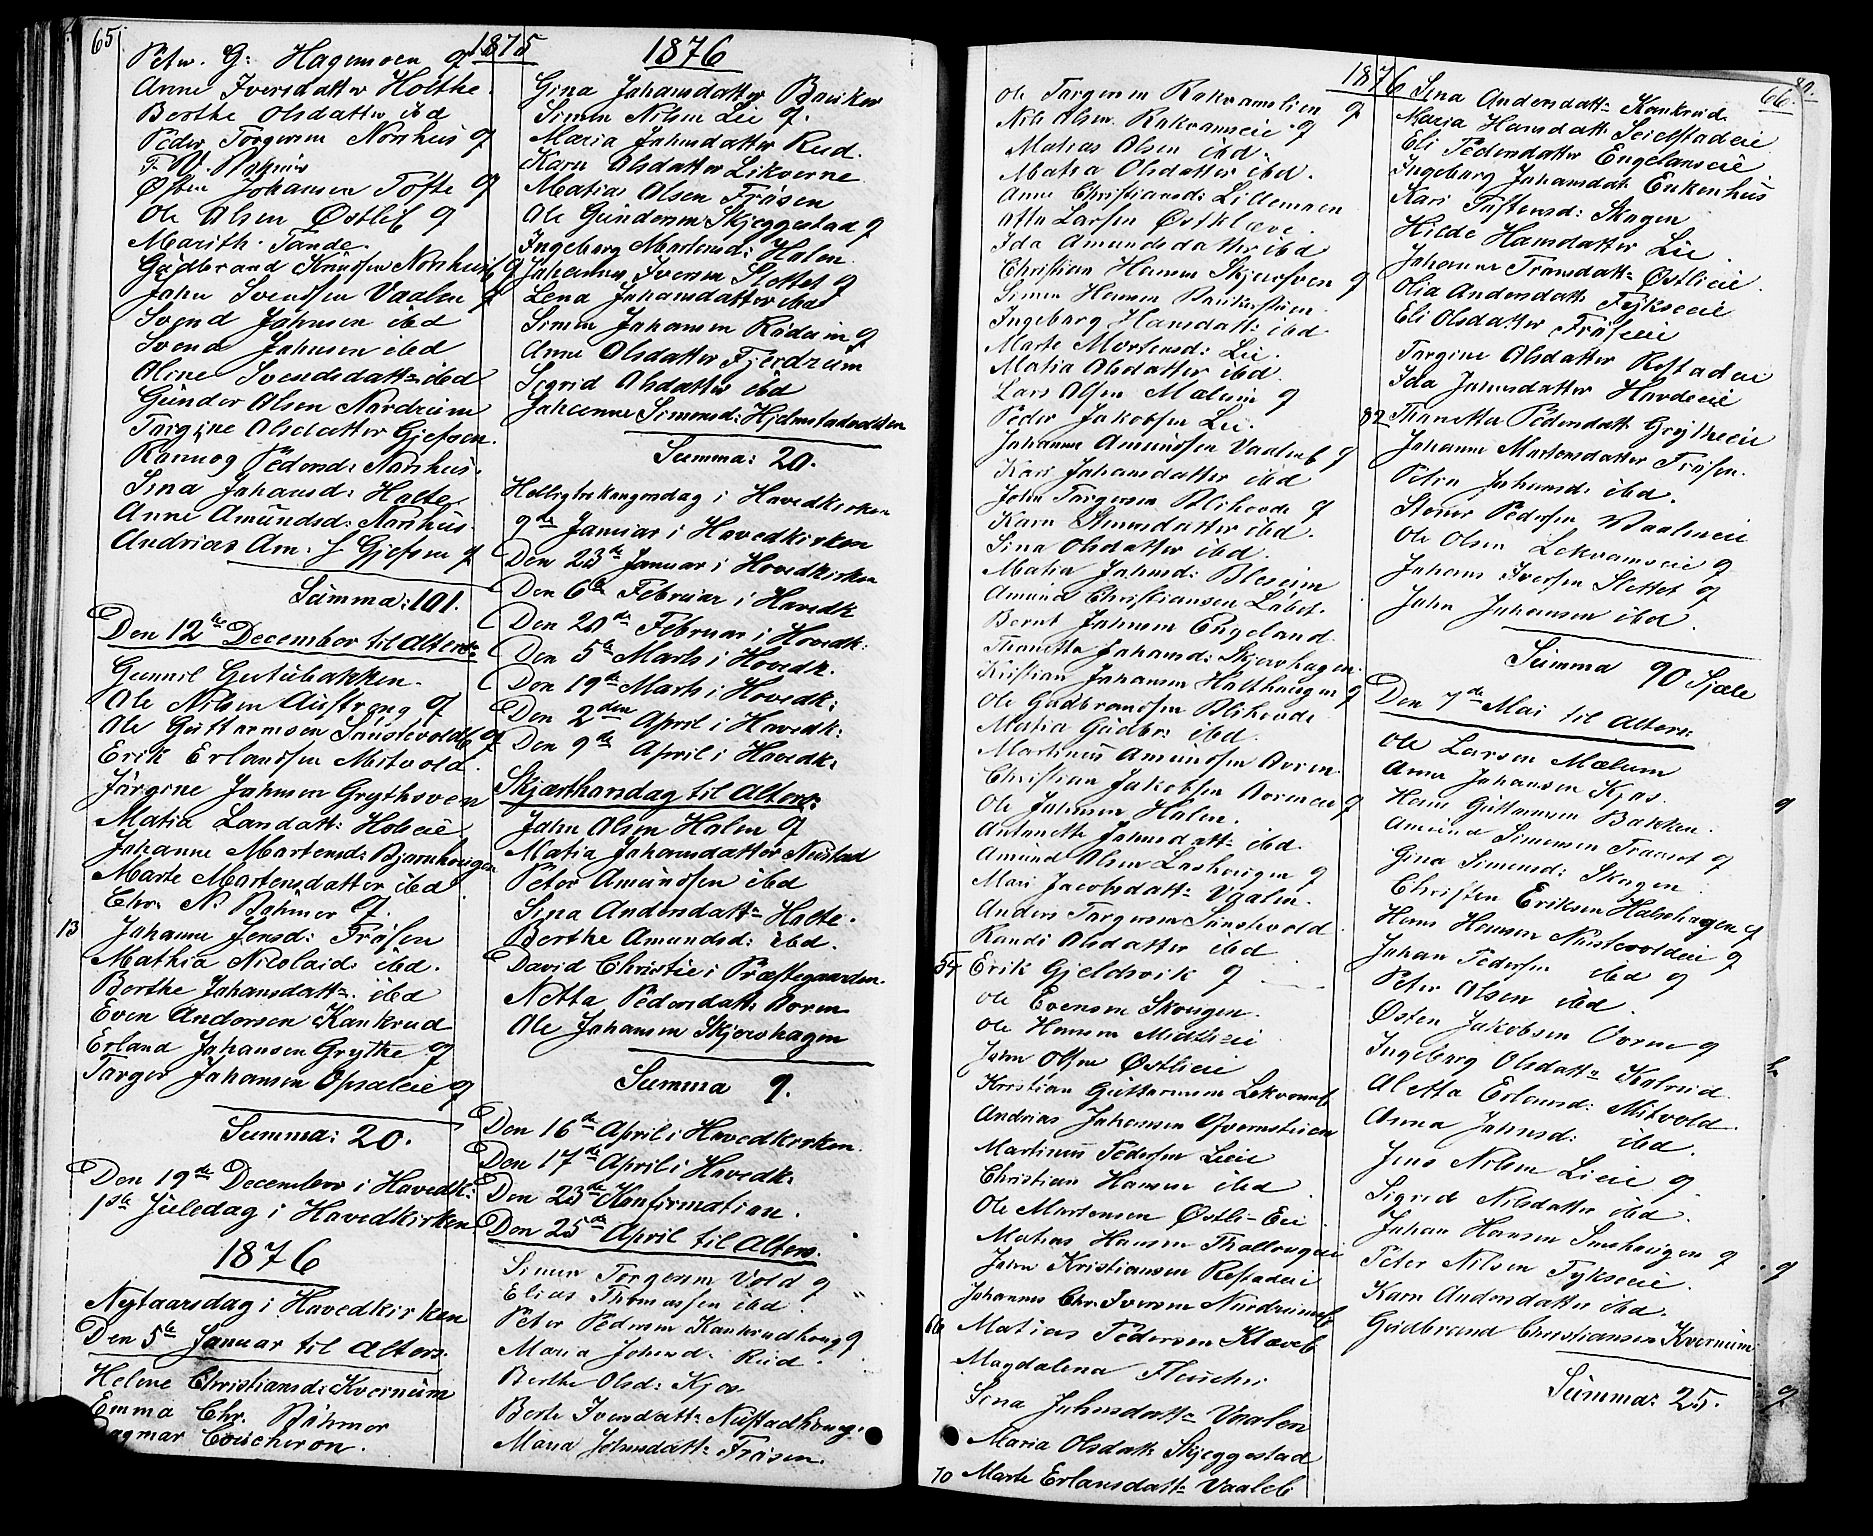 65
1875
Peter G: Hagemoen q
Anne Iversdatter Holthe
Berthe Olsdatter ibd
Peder Torgersen Norshus q
F. W.
Østen Johansen Tofte q
Ole Olsen Østlib q
Marith. Tande.
Gudbrand Knudsen Norshus q
John Svendsen Vaalen q
Svend Johnsen ibd
Svend Johnsen ibd
Oline Svendsdatt: ibd
Gunder Olsen Nordrum
Torgine Olsdatter Gjefsen.
Rannog Pedersd: Norshus.
Sina Johansd: Holte
Anne Amundsd: Norshus.
Andrias Am. J Gjefsen q
Summa: 101.
Den 12te December til Alters
Gunnil Gutubakken.
Ole Nilsen Austrong q
Ole Guttormsen Sønstevoldb q
Erik Erlandsen Mitvold.
Jørgine Johnsen Grythsveen
Matia Larsdatt: Hobeie
Johanne Martensd: Bjørnhougen
Marte Martensdatter ibd
Chr. N. Bøhmer q.
13 Johanne Jensd: Frøsen
Mathia Nicolaid: ibd.
Berthe Johansdatt: ibd
Even Andersen Kankrud
Erland Johansen Grythe q
Torger Johansen Opsaleie q
Summa: 20.
Den 19de December i Hovedk:
1ste Juledag i Hovedkirken
1876
Nytaarsdag i Hovedkirken
Den 5te Januar til Alters.
Helene Christiansd: Kvernum
Emma Chr. Bøhmer
Dagmar Coucheron.
1876
Gina Johansdatter Bauker
Simen Nilsen Lie q.
Maria Johnsdatter Rud.
Karn Olsdatter Likverne
Matias Olsen Frøsen
Ole Gundersen Skjeggestad q
Ingeborg Martensd: Holen
Johannes Iversen Slettet q
Lena Johansdatter ibd
Simen Johansen Rødum q
Anne Olsdatter Fjerdrum
Segrid Olsdatter ibd
Johanne Simensd: Hjelmstadødden
Summa: 20.
Helligtrekongersdag i Hovedkirken
9de Januar i Hovedkirken
Den 23de Januar i Hovedkirken
Den 6te Februar i Hovedk
Den 20de Februar i Hovedk:
Den 5te Marts i Hovedk.
Den 19de Marts i Hovedk:
Den 2den April i Hovedk:
Den 9de April i Hovedk:
Skjærthorsdag til Alters:
John Olsen Holen q
Matia Johansdatter Nustad
Peter Amundsen ibd
Sina Andersdatt: Holte.
Berthe Amundsd: ibd.
David Christie i Præstegaarden.
Netta Pedersdatt: Voren
Ole Johansen Skjævshagen
Summa 9.
Den 16de April i Hovedkirken.
Den 17de April i Hovedk:
Den 23de Konfirmation.
Den 25de April til Alters.
Simen Torgersen Vold q
Elias Thomassen ibd.
Peter Pedersen Kankrudhoug q
Maria Johnsd: Rud.
Berthe Olsd: Kjos
Berte Iversdatt: Nustadhoug.
Maria Johnsdatt: Frøsen.
1876
Ole Torgersen Rakvamslien q
Nils Olsen Rakvamseie q
Matias Olsen ibd.
Matia Olsdatter ibd.
Anne Christiansd: Lillemoen
Otto Larsen Østkleve.
Ida Amundsdatter ibd
Christian Hansen Skjævsveen q
Simen Hansen
Ingeborg Hansdatt: ibd.
Marte Mortensd: Lie.
Matia Olsdatter ibd
Lars Olsen Mælum q
Peder Jakobsen Lie.
Johanne Amundsen Vaaleneb q
Kari Johansdatter ibd
John Torgersen Blihovde q
Karn Simensdatter ibd.
Sina Olsdatter ibd.
Matia Johnsd: Bleseim
Amund Christiansen Labet.
Bernt Johnsen Engeland.
Thonetta Johansd: Skjævshagen.
Kristian Johansen Holthougen q
Ole Gudbrandsen Blihovde.
Matia Gudbr: ibd.
Martinus Amundsen Voren
Christian Jakobsen Vorenen q
Ole Johnsen Holen.
Antonette Johnsdatt: ibd.
Amund Olsen Lashougen q
Mari Jacobsdatt: Vaalen.
Anders Torgersen Sønstevold.
Randi Olsdatter ibd.
54 Erik Gjeldsvik q
Ole Evensen Skougen.
Ole Hansen Midtlieei
John Olsen Østlieei
Kristian Guttormsen Lekvameb
Andrias Johansen Qvernstuen
Martinus Pedersen Lieie
Christian Hansen ibd
Ole Martensen Østli-Eie
Matias Hansen Thallougeie
John Kristiansen Rostadeie
Johannes Chr. Iversen Nordrumeb
66 Matias Pedersen Kleveb
Magdalena Fleischer
Sina Johnsdatt: Vaalen
Maria Olsdatt: Skjeggestad
70 Marte Erlansdatt: Vaaleb
66. 80.
Sina Andersdatt: Kankrud.
Maria Hansdatt: Seielstadeie
Eli Pedersdatter Engelanseie
Ingeborg Johansdatt: Enkenhus
Kari Tostensd: Skogen
Hilde Hansdatter Lie
Johanne Fransdatt: Østlieie.
Olia Andersdatt: Tykseeie
Eli Olsdatter Frøseeie
Torgine Olsdatter Rostadeie
Ida Johnsdatter Hovdeeie
82 Thonetta Pedersdatt: Grytheeie
Johanne Martensdatter Frøsen.
Petra Johnsd: ibd.
Stener Pedersen Vaaleneie
Ole Olsen Lekvamseie q
Johans Iversen Slettet q
John Johansen ibd.
Summa 90 Sjæle
Den 7de Mai til Alters.
Ole Larsen Mælum
Anne Johansen Kjos. q
Hans Guttormsen Bakken.
Amund Simensen Traaset q
Gina Simensd: Skogen.
Christen Eriksen Holoshagen q
Hans Hansen Nustevoldeie q
Johan Pedersen ibd q
Peter Olsen ibd.
Østen Jakobsen Voren q
Ingeborg Olsdatt: Kolsrud.
Aletta Erlansd: Mitvold
Anna Johnsd: ibd.
Jens Nilsen Lieie q
Sigrid Nilsdatter ibd.
Johan Hansen Smehougen q
Peter Nilsen Tykseeie. q
Karn Andersdatter ibd.
Gudbrand Christiansen Kvernum
Summa: 25. q